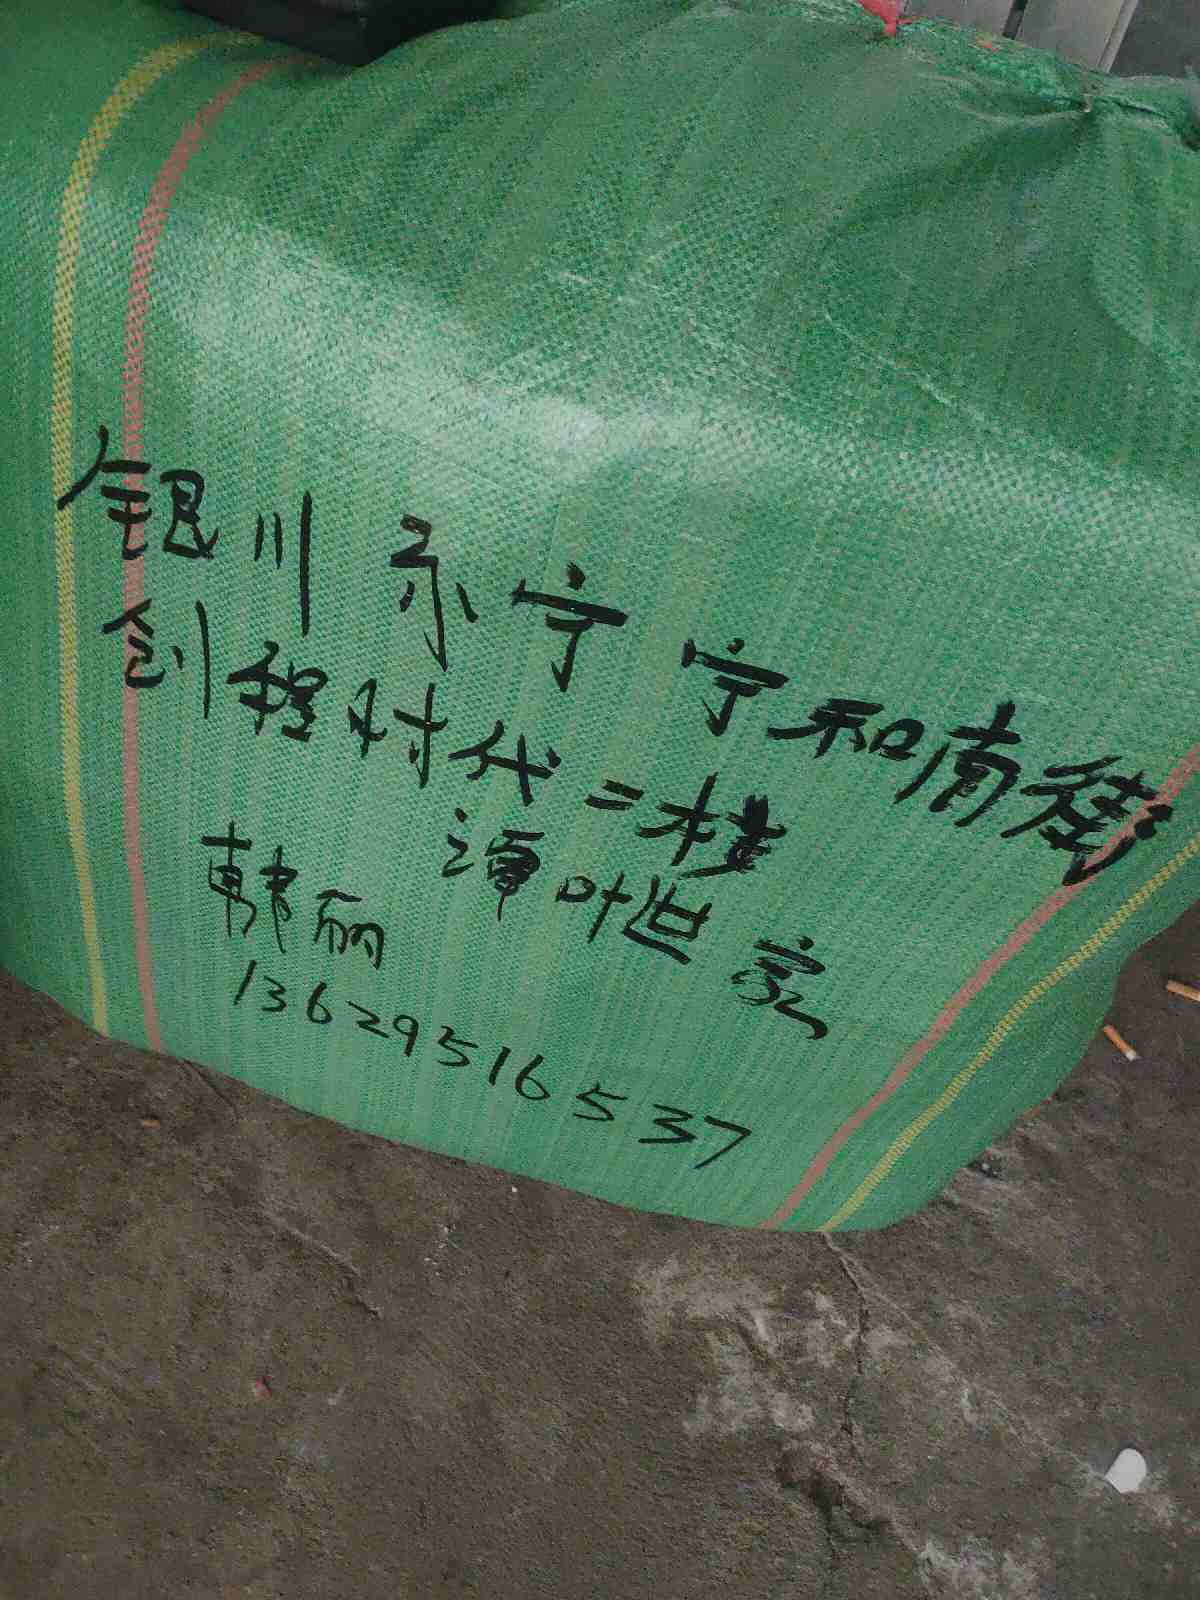 银川永宁 宁和南街
创程时代二楼
谭叶世家
韩丽
13629516537